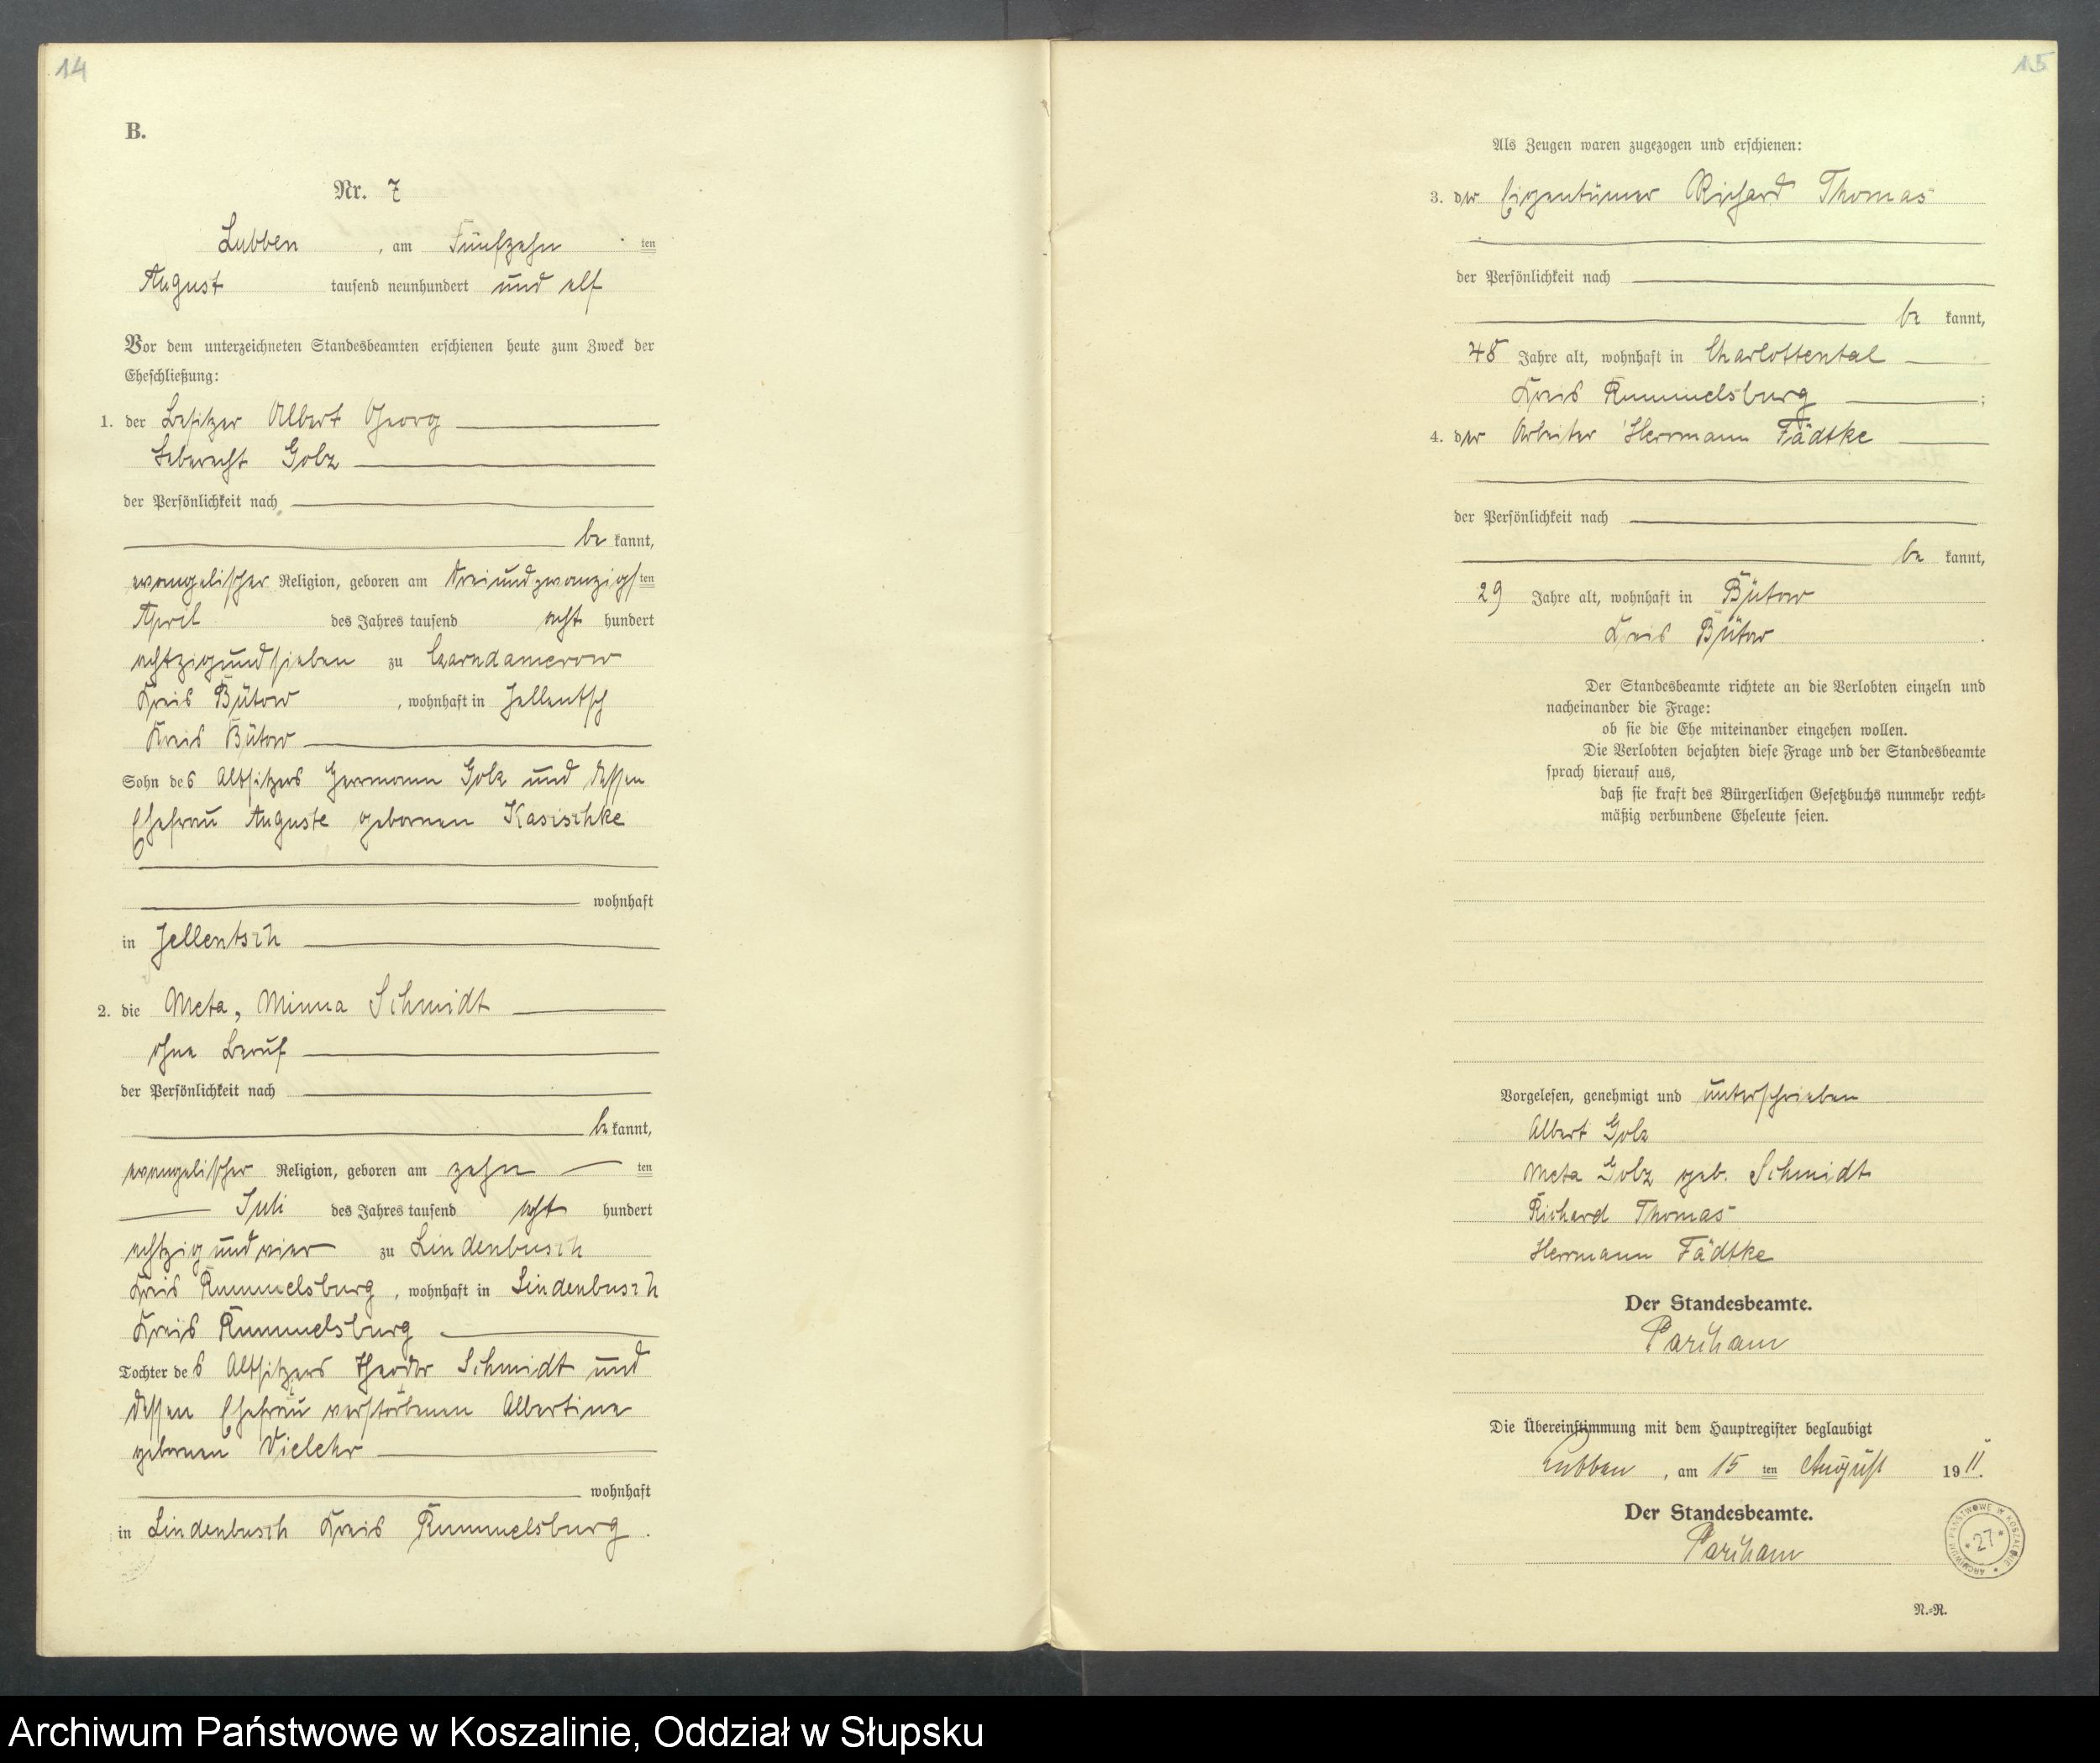 14
B.
Nr. 7
Lubben, am Fünfzehn ten
August tausend neunhundert und elf
Vor dem unterzeichneten Standesbeamten erschienen heute zum Zweck der
Eheschließung:
1. der Besitzer Albert Georg
Leberecht Golz
der Persönlichkeit nach
be kannt,
evangelischer Religion, geboren am dreiundzwanzigsten
April des Jahres tausend acht hundert
achtzigundsieben zu Czarndamerow
Kreis Bütow, wohnhaft in Jellentsch
Kreis Bütow
Sohn des Altsitzers Herrmann Golz und dessen
Ehefrau Auguste gebornen Kasischke
wohnhaft
in Jellentsch
2. die Meta, Minna Schmidt
ohne Beruf
der Persönlichkeit nach
be kannt,
evangelischer Religion, geboren am zehn ten
Juli des Jahres tausend acht hundert
achtzig und vier zu Lindenbusch
Kreis Rummelsburg, wohnhaft in Lindenbusch
Kreis Rummelsburg
Tochter des Altsitzers Theodor Schmidt und
dessen Ehefrau verstorbenen Albertine
gebornen Vielehr
wohnhaft
in Lindenbusch Kreis Rummelsburg.
15
Als Zeugen waren zugezogen und erschienen:
3. der Eigentümer Richard Thomas
der Persönlichkeit nach
be kannt,
48 Jahre alt, wohnhaft in Charlottental
Kreis Rummelsburg;
4. der Arbeiter Herrmann Fädtke
der Persönlichkeit nach
be kannt,
29 Jahre alt, wohnhaft in Bütow
Kreis Bütow.
Der Standesbeamte richtete an die Verlobten einzeln und
nacheinander die Frage:
ob sie die Ehe miteinander eingehen wollen.
Die Verlobten bejahten diese Frage und der Standesbeamte
sprach hierauf aus,
daß sie kraft des Bürgerlichen Gesetzbuchs nunmehr recht-
mäßig verbundene Eheleute seien.
Vorgelesen, genehmigt und unterschrieben
Albert Golz
Meta Golz geb. Schmidt
Richard Thomas
Herrmann Fädtke
Der Standesbeamte.
Die Übereinstimmung mit dem Hauptregister beglaubigt
Lubben, am 15 ten August 1911.
Der Standesbeamte.
ARCHIWUM PAŃSTWOWE W KOSZALINIE
* 27 *
N.-R.
Archiwum Państwowe w Koszalinie, Oddział w Słupsku